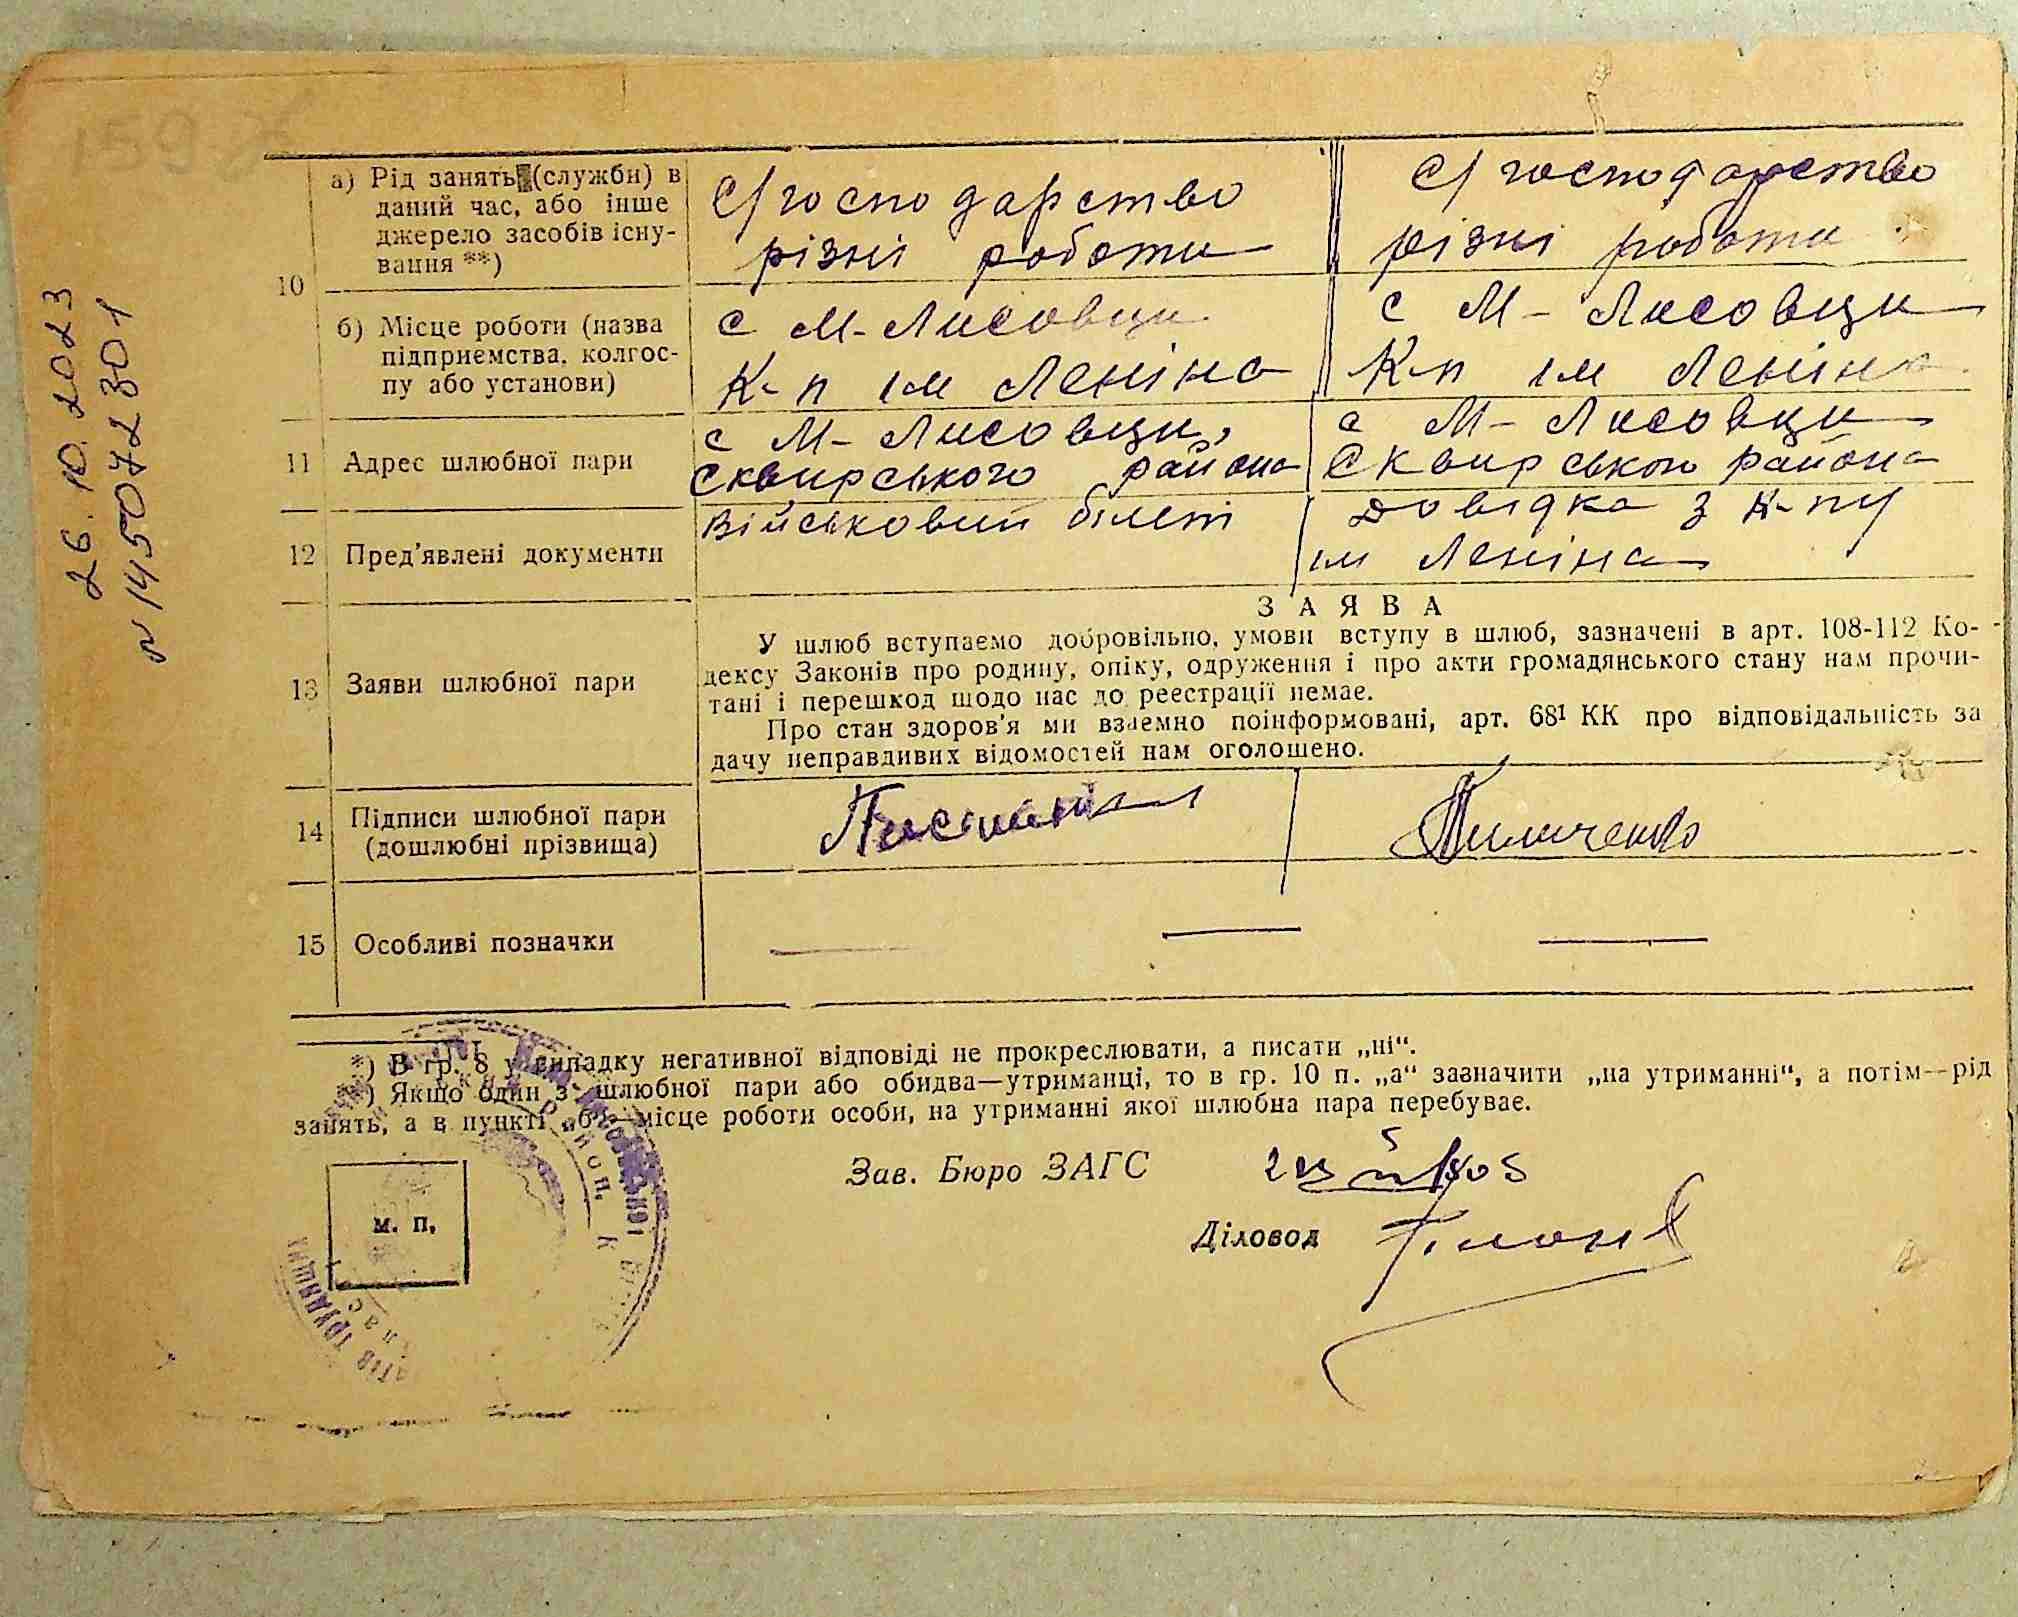 159
26.10.2023
№ 1450 7 2301
10
а) Рід занять (служби) в
даний час, або інше
джерело засобів існу-
вання **)
С/господарство
різні роботи
С/господарство
різні роботи
б) Місце роботи (назва
підприємства, колгос-
пу або установи)
с М-Лисовци
К-п ім Леніна
с М-Лисовци
К-п ім Леніна
11
Адрес шлюбної пари
с М-Лисовци,
Сквирського района
с М-Лисовци
Сквирського района
12
Пред'явлені документи
Військовий білет
Довідка з к-пу
ім Леніна
13
Заяви шлюбної пари
ЗАЯВА
У шлюб вступаємо добровільно, умови вступу в шлюб, зазначені в арт. 108-112 Ко-
дексу Законів про родину, опіку, одруження і про акти громадянського стану нам прочи-
тані і перешкод щодо нас до реєстрації немає.
Про стан здоров'я ми взаємно поінформовані, арт. 68¹ КК про відповідальність за
дачу неправдивих відомостей нам оголошено.
14
Підписи шлюбної пари
(дошлюбні прізвища)
15
Особливі позначки
*) В гр. 8 у випадку негативної відповіді не прокреслювати, а писати „ні“.
) Якщо один з шлюбної пари або обидва—утриманці, то в гр. 10 п. „а“ зазначити „на утриманні“, а потім—рід
занять, а в пункті „б“—місце роботи особи, на утриманні якої шлюбна пара перебуває.
м. п.
Зав. Бюро ЗАГС
Діловод
трудящих